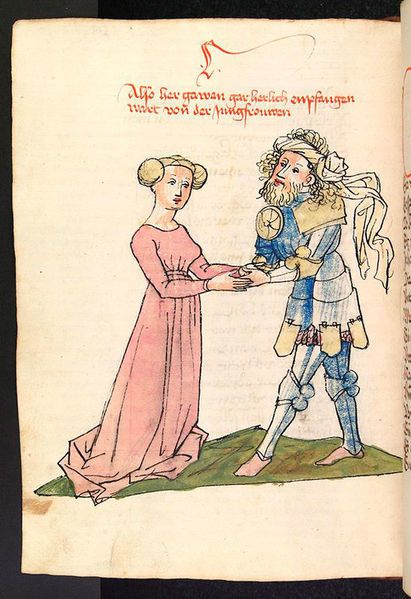 Also her gawen gar herlich enpfangen
wart von der Jungfrouwen